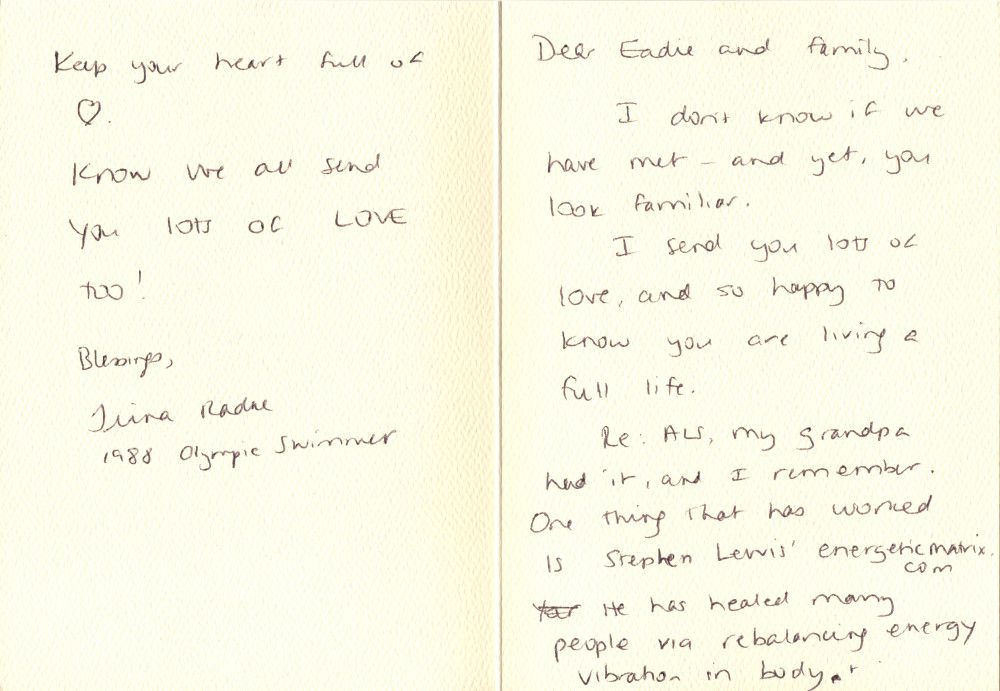 Keep your heart full of
♡.
Know we all send
you lots of LOVE
too!
Blessings,
Trina Radke
1988 Olympic Swimmer
Dear Eadie and family,
I don't know if we
have met – and yet, you
look familiar.
I send you lots of
love, and so happy to
know you are living a
full life.
Re: ALS, my grandpa
had it, and I remember.
One thing that has worked
is Stephen Lewis' energeticmatrix.
com
He has healed many
people via rebalancing energy
vibration in body.